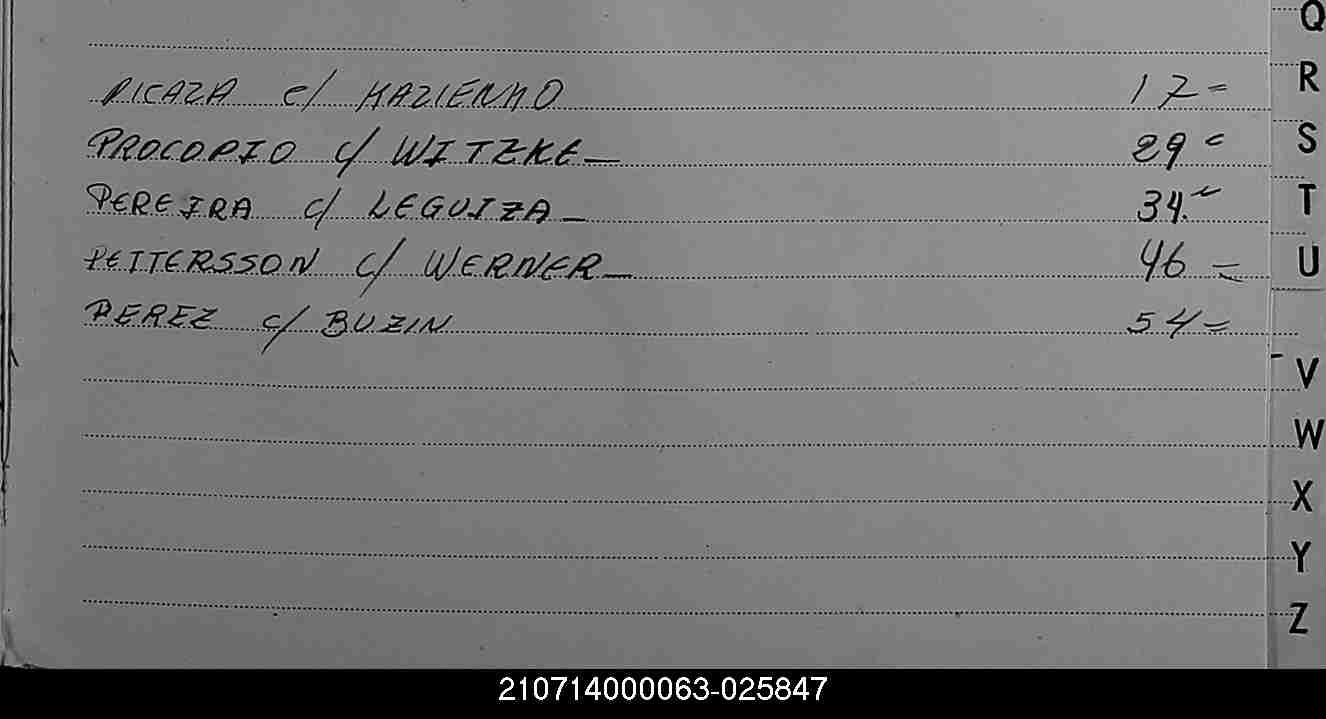 PICAZA c/ MAZIENMO 17=
PROCOPIO c/ WITZKE— 29 =
PEREIRA c/ LEGUIZA— 34.=
PETTERSSON c/ WERNER— 46 =
PEREZ c/ BUZIN 54=
Q
R
S
T
U
V
W
X
Y
Z
210714000063-025847